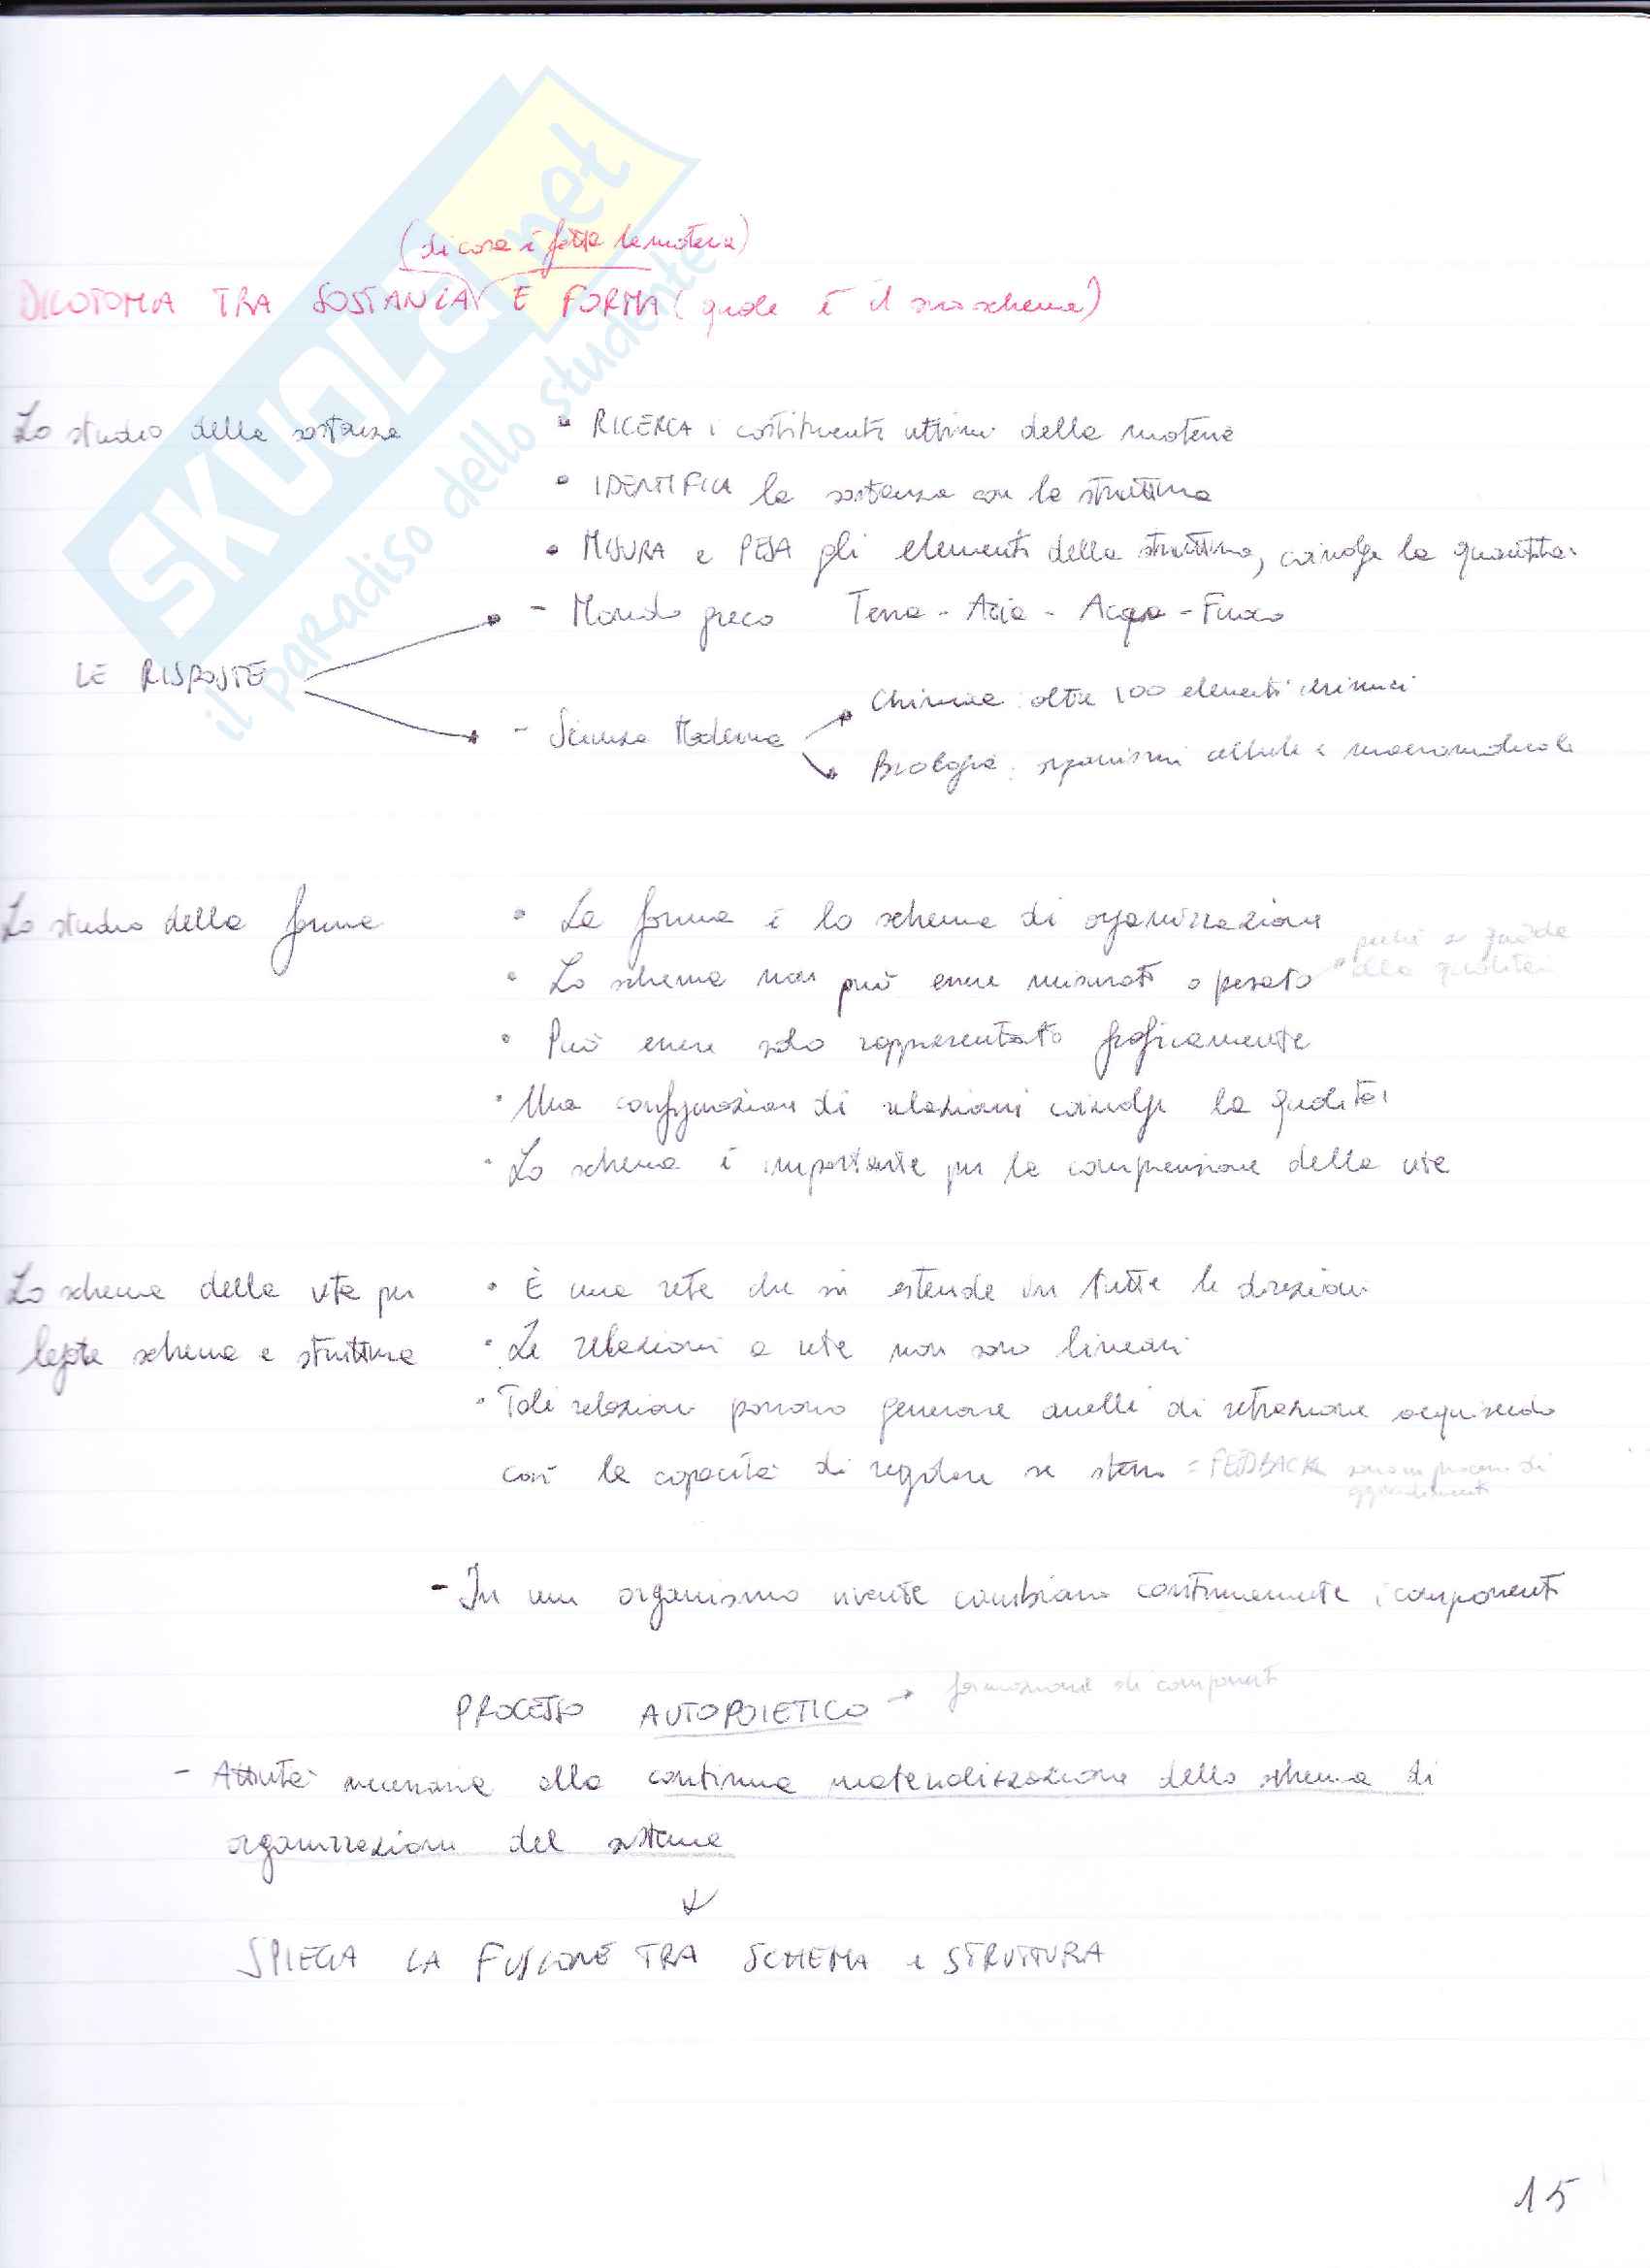 SKUOLA.net
il paradiso dello studente
(di cosa è fatta la materia)
DICOTOMIA TRA SOSTANZA E FORMA (quale è il suo schema)
Lo studio della sostanza
• RICERCA i costituenti ultimi della materia
• IDENTIFICA la sostanza con la struttura
• MISURA e PESA gli elementi della struttura, coinvolge la quantità
LE RISPOSTE
- Mondo greco Terra - Aria - Acqua - Fuoco
- Scienza Moderna
Chimica: oltre 100 elementi chimici
Biologia: organismi cellule e macromolecole
Lo studio della forma
• La forma è lo schema di organizzazione
• Lo schema non può essere misurato o pesato
perché si guarda
alla qualità
• Può essere solo rappresentato graficamente
• Una configurazione di relazioni coinvolge la qualità
• Lo schema è importante per la comprensione della vita
Lo schema della vita per
legare schema e struttura
• È una rete che si estende in tutte le direzioni
• Le relazioni a rete non sono lineari
• Tali relazioni possono generare anelli di retroazione acquisendo
così la capacità di regolare se stessi = FEEDBACK sono processi di
apprendimento
- In un organismo vivente cambiano continuamente i componenti
PROCESSO AUTOPOIETICO → formazione di componenti
- Attività necessaria alla continua materializzazione dello schema di
organizzazione del sistema
SPIEGA LA FUSIONE TRA SCHEMA e STRUTTURA
15